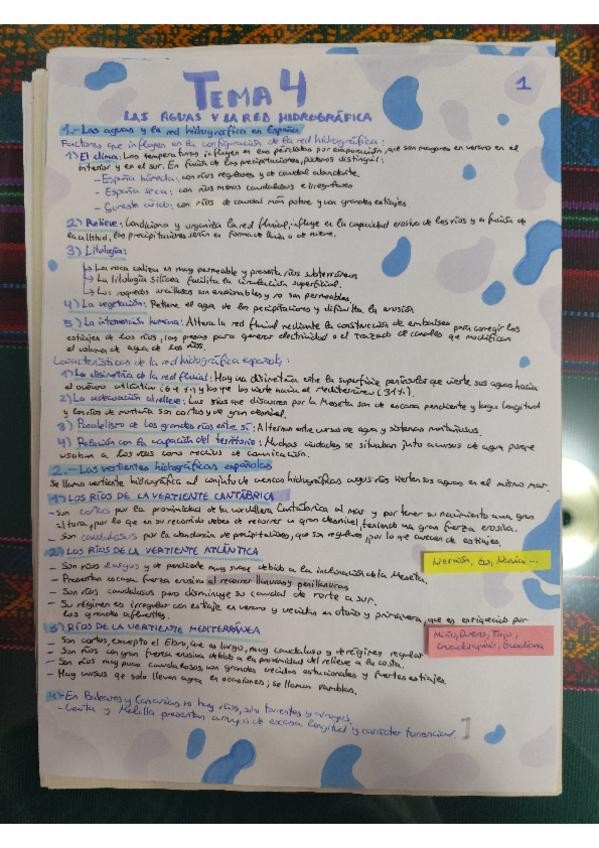 TEMA 4
1
LAS AGUAS Y LA RED HIDROGRÁFICA
1.- Las aguas y la red hidrográfica en España
Factores que influyen en la configuración de la red hidrográfica:
1) El clima: Las temperaturas influyen en las pérdidas por evaporación, que son mayores en verano en el
interior y en el sur. En función de las precipitaciones, podemos distinguir:
- España húmeda: con ríos regulares y de caudal abundante.
- España seca: con ríos menos caudalosos e irregulares
- Sureste árido: con ríos de caudal más pobre y con grandes estiajes.
2) Relieve: Condiciona y organiza la red fluvial, influye en la capacidad erosiva de los ríos y en función de
la altitud, las precipitaciones serán en forma de lluvia o de nieve.
3) Litología:
La roca caliza es muy permeable y presenta ríos subterráneos
La litología silícea facilita la circulación superficial.
Los roquedos arcillosos son erosionables y no son permeables
4) La vegetación: Retiene el agua de las precipitaciones y dificulta la erosión
5) La intervención humana: Altera la red fluvial mediante la construcción de embalses para corregir los
estiajes de los ríos, las presas para generar electricidad o el trazado de canales que modifican
el volumen de agua de los ríos.
Características de la red hidrográfica española:
1) La disimetría de la red fluvial: Hay una disimetría entre la superficie peninsular que vierte sus aguas hacia
el océano atlántico (69%) y los que los vierte hacia el Mediterráneo (31%).
2) La adecuación al relieve: Los ríos que discurren por la Meseta son de escasa pendiente y larga longitud
y los ríos de montaña son cortos y de gran desnivel.
3) Paralelismo de los grandes ríos entre sí: Alternan entre cursos de agua y sistemas montañosos.
4) Relación con la ocupación del territorio: Muchas ciudades se situaban junto a cursos de agua porque
usaban a los ríos como medios de comunicación.
2.- Las vertientes hidrográficas españolas
Se llama vertiente hidrográfica al conjunto de cuencas hidrográficas cuyos ríos vierten sus aguas en el mismo mar.
1) LOS RÍOS DE LA VERTIENTE CANTÁBRICA
- Son cortos por la proximidad de la cordillera Cantábrica al mar y por tener su nacimiento a una gran
altura, por lo que en su recorrido deben de recorrer un gran desnivel, teniendo una gran fuerza erosiva.
- Son caudalosos por la abundancia de precipitaciones, que son regulares, por lo que carecen de estiajes.
2) LOS RÍOS DE LA VERTIENTE ATLÁNTICA
Nervión, Eo, Navia...
- Son ríos largos y de pendiente muy suave debido a la inclinación de la Meseta.
- Presentan escasa fuerza erosiva al recorrer llanuras y penillanuras
- Son ríos caudalosos pero disminuye su caudal de norte a sur.
- Su régimen es irregular con estiaje en verano y crecidas en otoño y primavera, que es enriquecido por
los grandes afluentes.
Miño, Duero, Tajo,
Guadalquivir, Guadiana
3) RÍOS DE LA VERTIENTE MEDITERRÁNEA
- Son cortos, excepto el Ebro, que es largo, muy caudaloso y de régimen regular
- Son ríos con gran fuerza erosiva debido a la proximidad del relieve a la costa.
- Son ríos muy poco caudalosos, con grandes crecidas estacionales y fuertes estiajes.
- Hay cursos que solo llevan agua en ocasiones; se llaman ramblas.
4 - En Baleares y Canarias no hay ríos, sino torrentes y arroyos.
- Ceuta y Melilla presentan arroyos de escasa longitud y carácter torrencial.